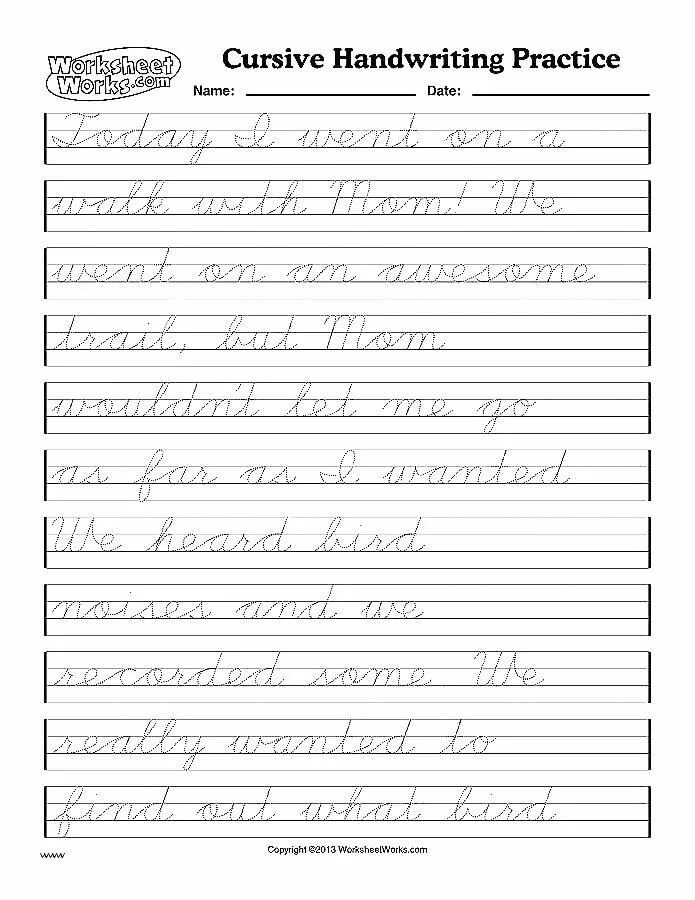 Worksheet
Works.com
Cursive Handwriting Practice
Name: Date:
Today I went on a
walk with Mom! We
went on an awesome
trail, but Mom
wouldn't let me go
as far as I wanted
We heard bird
noises and we
recorded some We
really wanted to
find out what bird
www
Copyright ©2013 WorksheetWorks.com